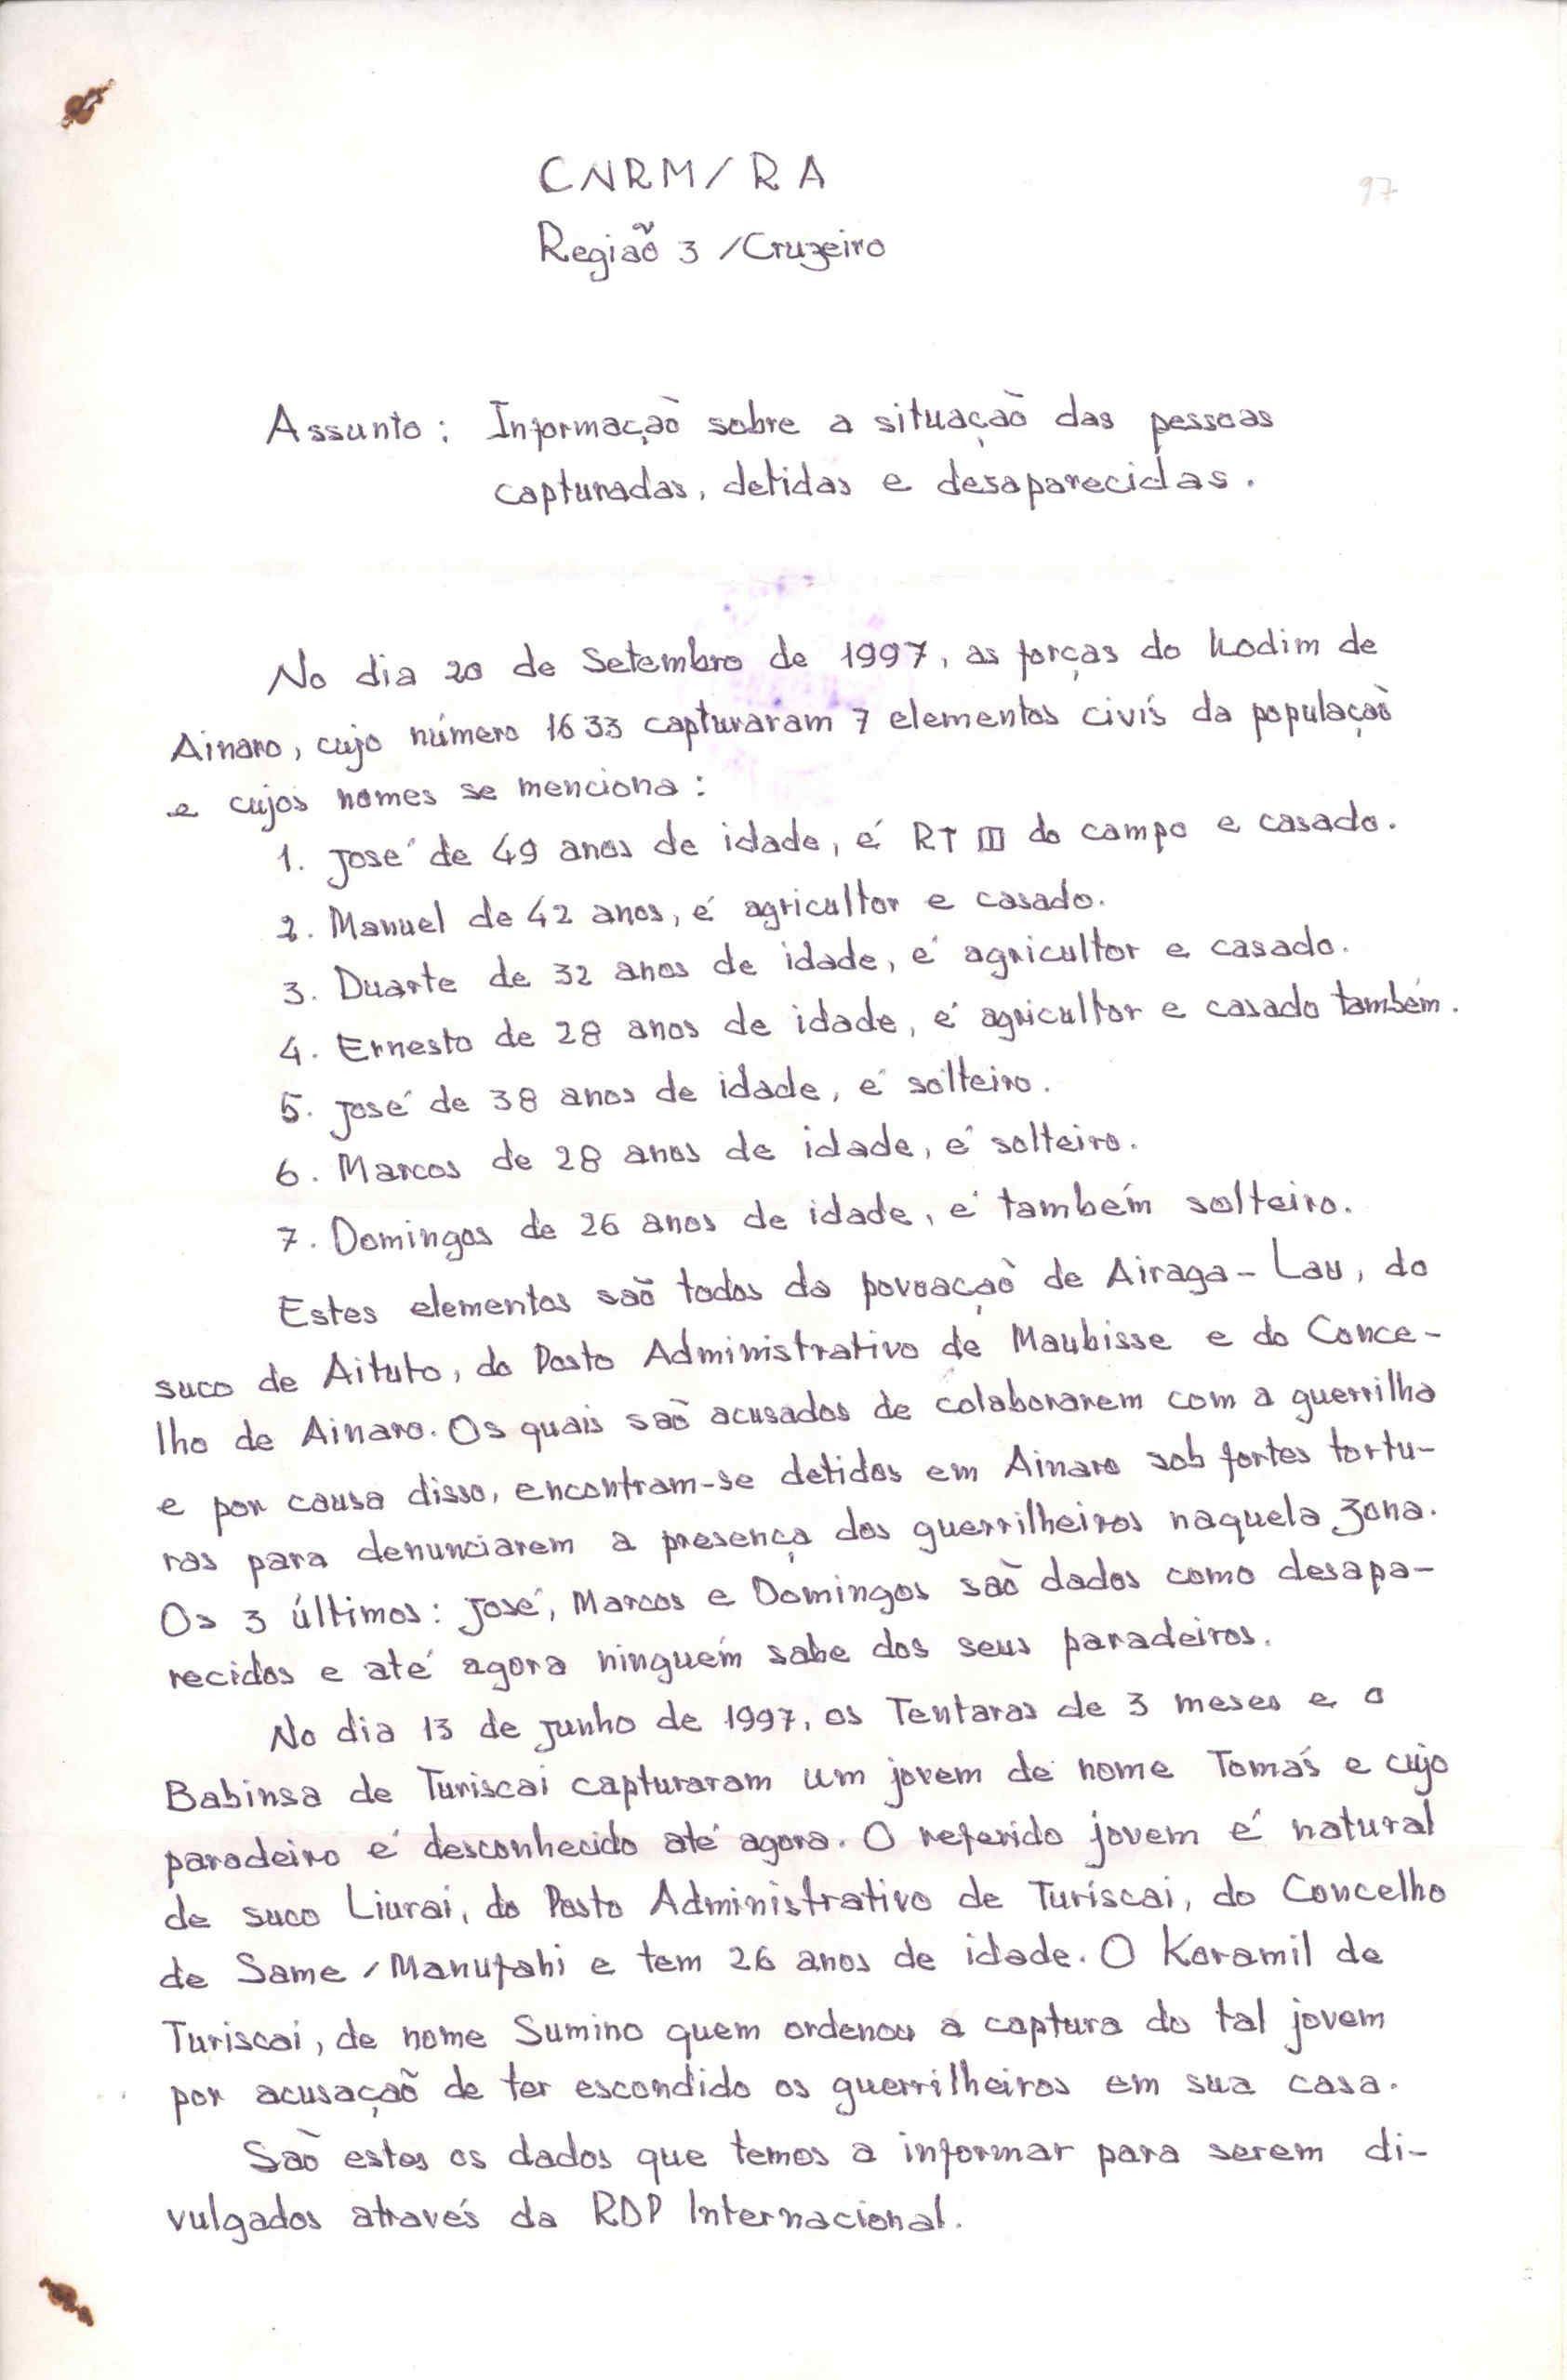 CNRM/RA
97
Região 3 /Cruzeiro
Assunto: Informação sobre a situação das pessoas
capturadas, detidas e desaparecidas.
No dia 20 de Setembro de 1997, as forças do Kodim de
Ainaro, cujo número 1633 capturaram 7 elementos civis da população
e cujos nomes se menciona:
1. José de 49 anos de idade, é RT III do campo e casado.
2. Manuel de 42 anos, é agricultor e casado.
3. Duarte de 32 anos de idade, é agricultor e casado.
4. Ernesto de 28 anos de idade, é agricultor e casado também.
5. José de 38 anos de idade, é solteiro.
6. Marcos de 28 anos de idade, é solteiro.
7. Domingos de 26 anos de idade, é também solteiro.
Estes elementos são todos da povoação de Airaga-Lau, do
suco de Aituto, do Posto Administrativo de Maubisse e do Conce-
lho de Ainaro. Os quais são acusados de colaborarem com a guerrilha
e por causa disso, encontram-se detidos em Ainaro sob fortes tortu-
ras para denunciarem a presença dos guerrilheiros naquela zona.
Os 3 últimos: José, Marcos e Domingos são dados como desapa-
recidos e até agora ninguém sabe dos seus paradeiros.
No dia 13 de Junho de 1997, os Tentaras de 3 meses e o
Babinsa de Turiscai capturaram um jovem de nome Tomás e cujo
paradeiro é desconhecido até agora. O referido jovem é natural
de suco Liurai, do Posto Administrativo de Turiscai, do Concelho
de Same/Manufahi e tem 26 anos de idade. O Koramil de
Turiscai, de nome Sumino quem ordenou a captura do tal jovem
por acusação de ter escondido os guerrilheiros em sua casa.
São estes os dados que temos a informar para serem di-
vulgados através da RDP Internacional.